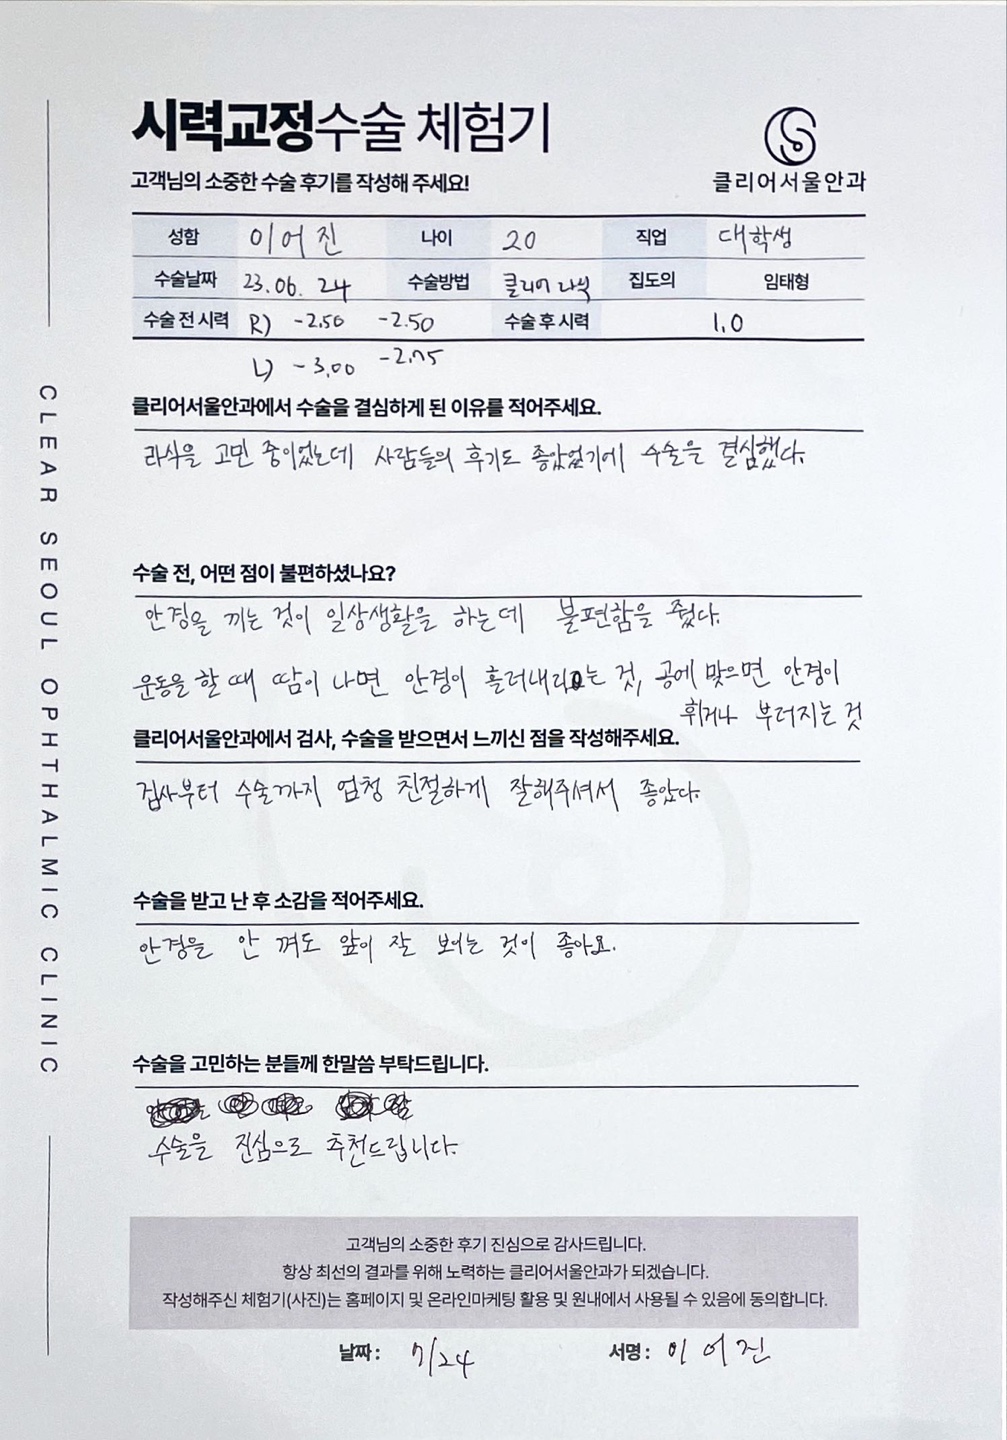 시력교정수술 체험기
고객님의 소중한 수술 후기를 작성해 주세요!
클리어서울안과
성함 이어진 나이 20 직업 대학생
수술날짜 23.06.24 수술방법 클리어 라식 집도의 임태형
수술 전 시력 R) -2.50 -2.50 수술 후 시력 1.0
L) -3.00 -2.75
CLEAR SEOUL OPHTHALMIC CLINIC
클리어서울안과에서 수술을 결심하게 된 이유를 적어주세요.
라식을 고민 중이었는데 사람들의 후기도 좋았었기에 수술을 결심했다.
수술 전, 어떤 점이 불편하셨나요?
안경을 끼는 것이 일상생활을 하는데 불편함을 줬다.
운동을 할 때 땀이 나면 안경이 흘러내리는 것, 공에 맞으면 안경이
휘거나 부러지는 것
클리어서울안과에서 검사, 수술을 받으면서 느끼신 점을 작성해주세요.
검사부터 수술까지 엄청 친절하게 잘해주셔서 좋았다.
수술을 받고 난 후 소감을 적어주세요.
안경을 안 껴도 앞이 잘 보이는 것이 좋아요.
수술을 고민하는 분들께 한말씀 부탁드립니다.
수술을 진심으로 추천드립니다.
고객님의 소중한 후기 진심으로 감사드립니다.
항상 최선의 결과를 위해 노력하는 클리어서울안과가 되겠습니다.
작성해주신 체험기(사진)는 홈페이지 및 온라인마케팅 활용 및 원내에서 사용될 수 있음에 동의합니다.
날짜 : 7/24 서명 : 이어진